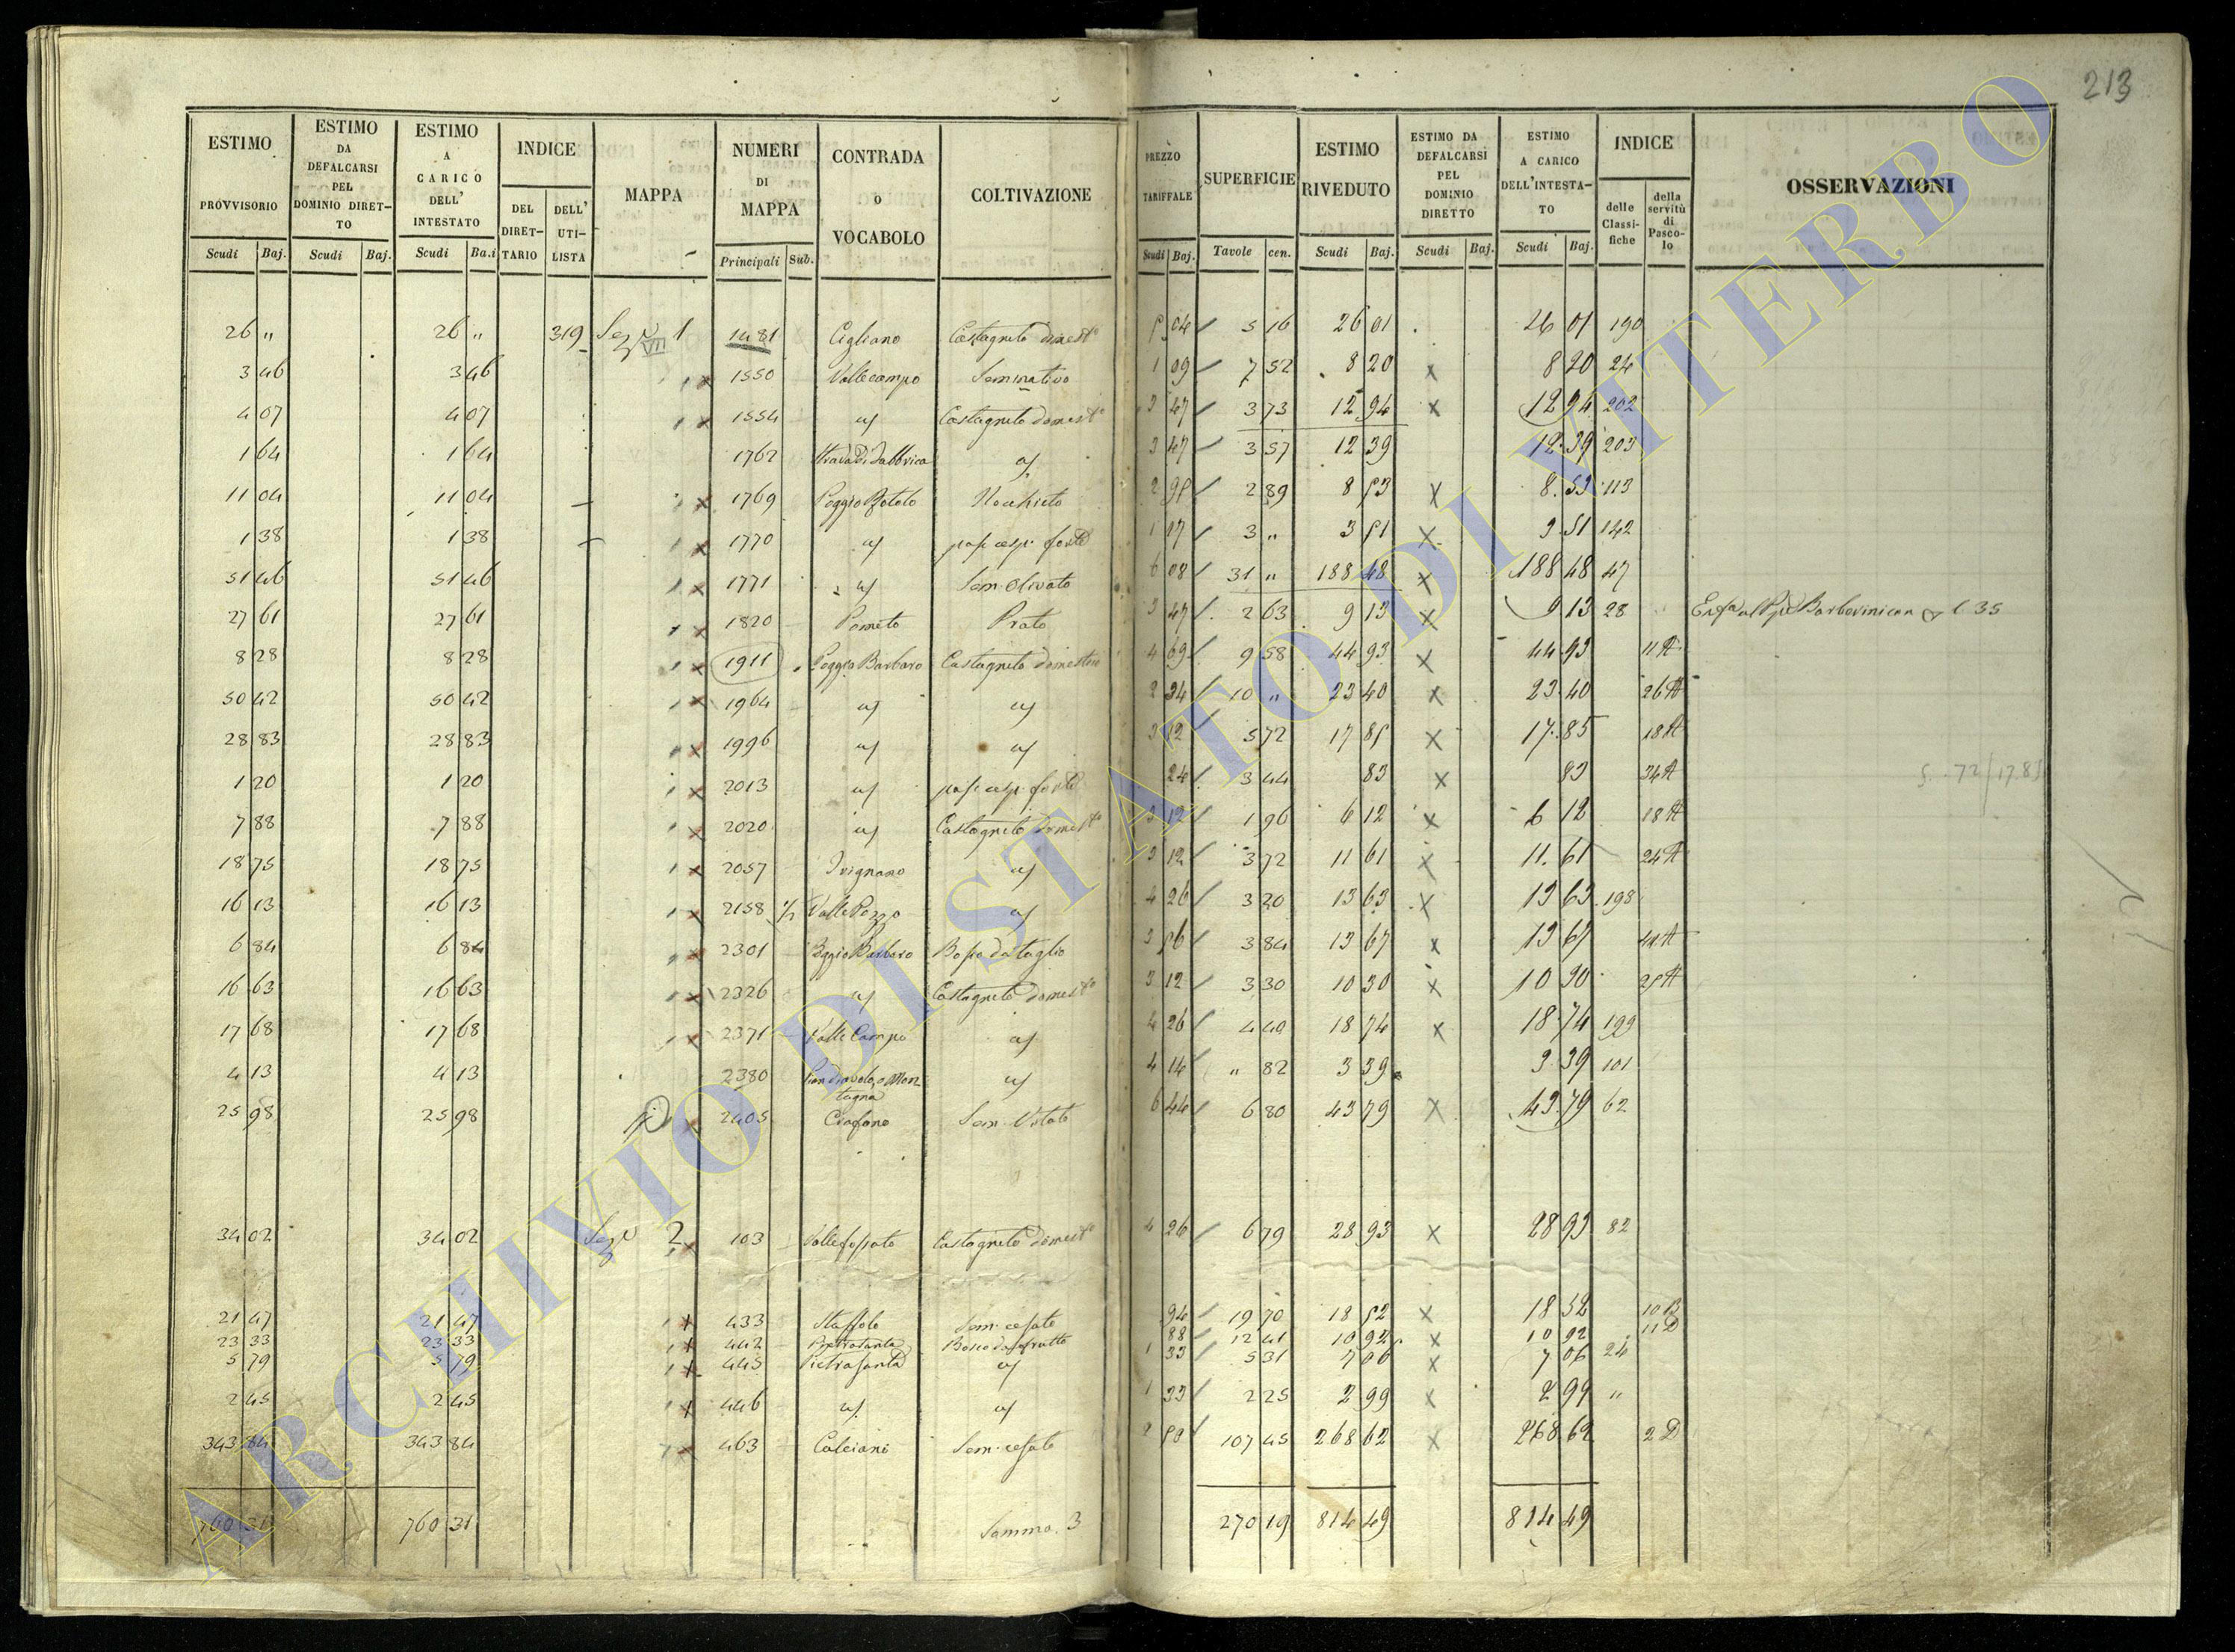 213
ESTIMO PROVVISORIO Scudi Baj.
ESTIMO DA DEFALCARSI PEL DOMINIO DIRETTO Scudi Baj.
ESTIMO A CARICO DELL' INTESTATO Scudi Ba.i
INDICE DEL DIRETTARIO DELL' UTILISTA
MAPPA
NUMERI DI MAPPA Principali Sub.
CONTRADA O VOCABOLO
COLTIVAZIONE
PREZZO TARIFFALE Scudi Baj.
SUPERFICIE Tavole cen.
ESTIMO RIVEDUTO Scudi Baj.
ESTIMO DA DEFALCARSI PEL DOMINIO DIRETTO Scudi Baj.
ESTIMO A CARICO DELL'INTESTATO Scudi Baj.
INDICE delle Classifiche della servitù di Pascolo
OSSERVAZIONI
26 " 26 " 319 Sez. VII 1 1481 Cigliano Castagneto domest.o 5 04 5 16 26 01 26 01 190
3 46 3 46 1 x 1550 Vallecampo Seminativo 1 09 7 52 8 20 x 8 20 24
4 07 4 07 1 x 1554 Castagneto domest.o 3 47 3 73 12 94 x 12 94 202
1 64 1 64 1762 Strada di Fabbrica 3 47 3 57 12 39 12 39 203
11 04 11 04 x 1769 Nochieto 2 95 2 89 8 53 x 8 53 113
1 38 1 38 1 x 1770 forte 1 17 3 " 3 51 x 3 51 142
51 46 51 46 1 x 1771 Sem. Olivato 6 08 31 " 188 48 x 188 48 47
27 61 27 61 1 x 1820 Pometo Prato 3 47 2 63 9 13 x 9 13 28 Barberinian 35
8 28 8 28 1 x 1911 Poggio Barbaro Castagneto domestico 4 69 9 58 44 93 x 44 93 11 A
50 42 50 42 1 x 1964 2 34 10 " 23 40 x 23 40 26 A
28 83 28 83 1 x 1996 3 12 5 72 17 85 x 17 85 18 A
1 20 1 20 1 x 2013 forte 24 3 44 83 x 83 34 A 5. 72/17.85
7 88 7 88 1 x 2020 Castagneto domest.o 3 12 1 96 6 12 x 6 12 18 A
18 75 18 75 1 x 2057 Ivignano 3 12 3 72 11 61 x 11 61 24 A
16 13 16 13 1 x 2158 Valle Pozzo 4 26 3 20 13 63 x 13 63 198
6 84 6 84 1 x 2301 Poggio Barbaro Bosco da taglio 3 56 3 84 13 67 x 13 67
16 63 16 63 1 x 2326 Castagneto domest.o 3 12 3 30 10 30 x 10 30 25 A
17 68 17 68 1 x 2371 Valle Campo 4 26 4 40 18 74 x 18 74 199
4 13 4 13 2380 Montagna 4 14 " 82 3 39 3 39 101
25 98 25 98 x 2405 Ciofano Sem. Vitato 6 44 6 80 43 79 x 43 79 62
34 02 34 02 Sez. 2 x 103 Vallefossato Castagneto domest.o 4 26 6 79 28 93 x 28 93 82
21 47 21 47 1 x 433 Staffolo Sem. cesato 94 19 70 18 52 x 18 52 10 B
23 33 23 33 1 x 442 Pietrasanta Bosco da frutto 88 12 41 10 92 x 10 92 11 D
5 79 5 79 1 x 445 Pietrasanta 1 33 5 31 7 06 x 7 06 24
2 45 2 45 1 x 446 1 33 2 25 2 99 x 2 99 "
343 84 343 84 1 x 463 Calciani Sem. cesato 2 50 107 45 268 62 x 268 62 2 D
760 31 760 31 Somma. 3 270 19 814 49 814 49
ARCHIVIO DI STATO DI VITERBO